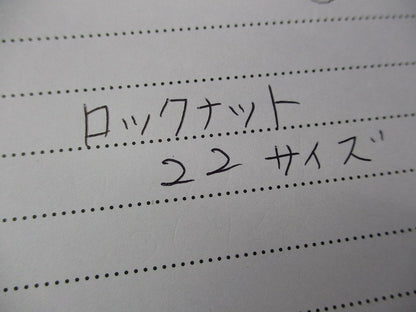 ロックナット
22 サイズ